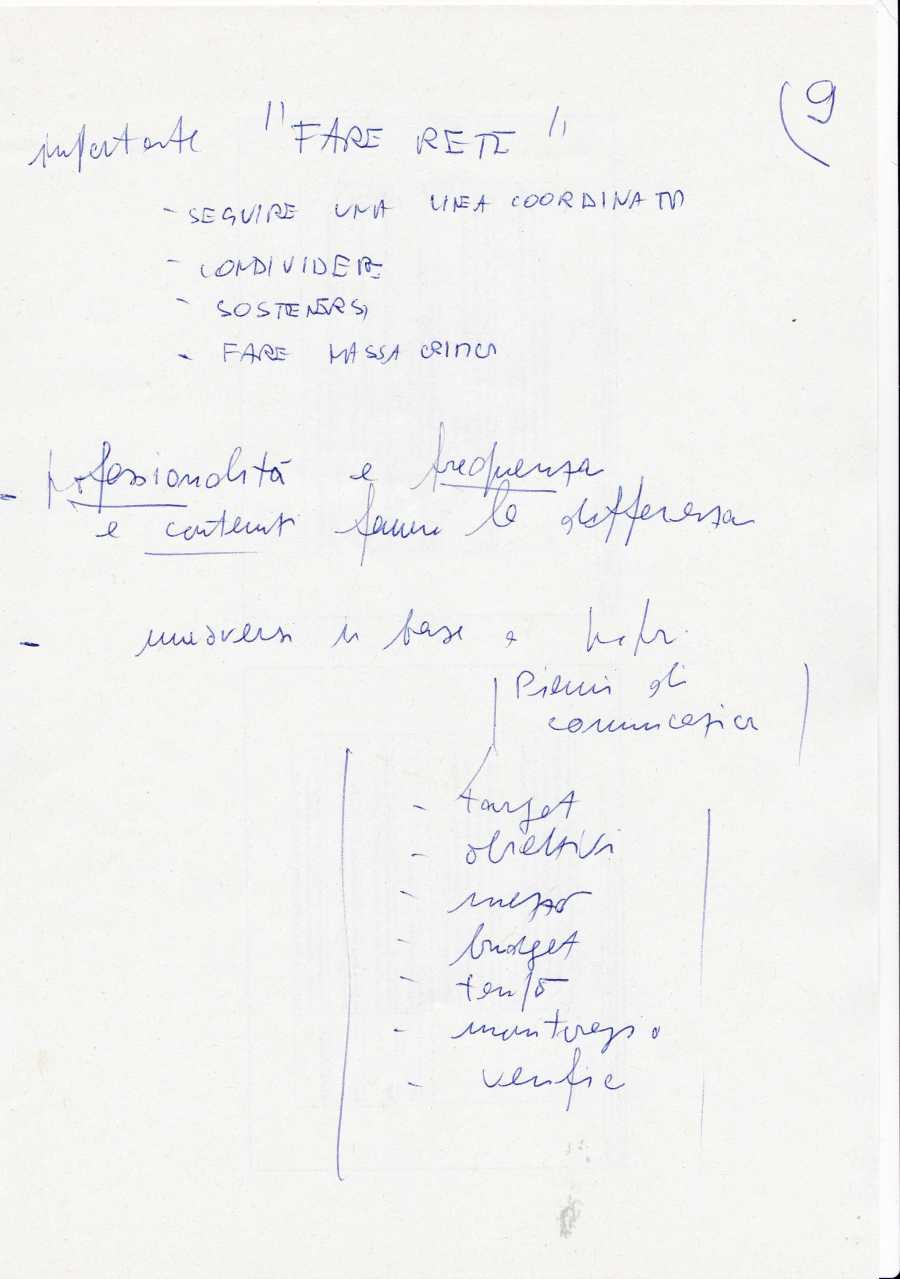 9
importante "FARE RETE"
- SEGUIRE UNA LINEA COORDINATA
- CONDIVIDERE
- SOSTENERSI
- FARE MASSA CRITICA
- professionalità e frequenza
e contenuti fanno la differenza
- muoversi in base a
Piani di
comunicazione
- target
- obiettivi
- mezzo
- budget
- tempo
- monitoraggio
- verifica